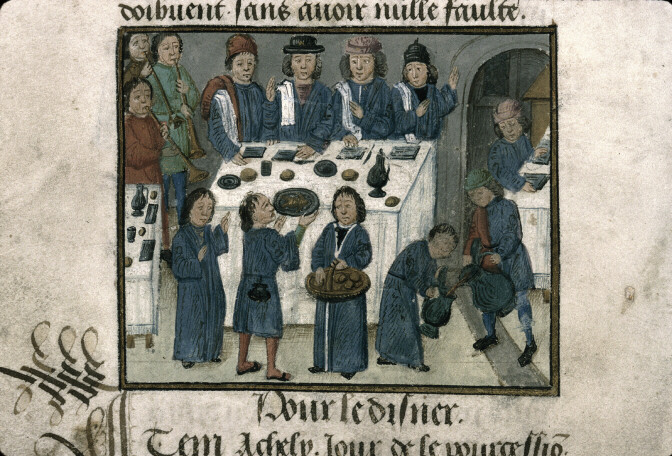 doibuent sans auoir nulle faulte.
Pour le disner.
Item Achely. Jour de le pourcessiō